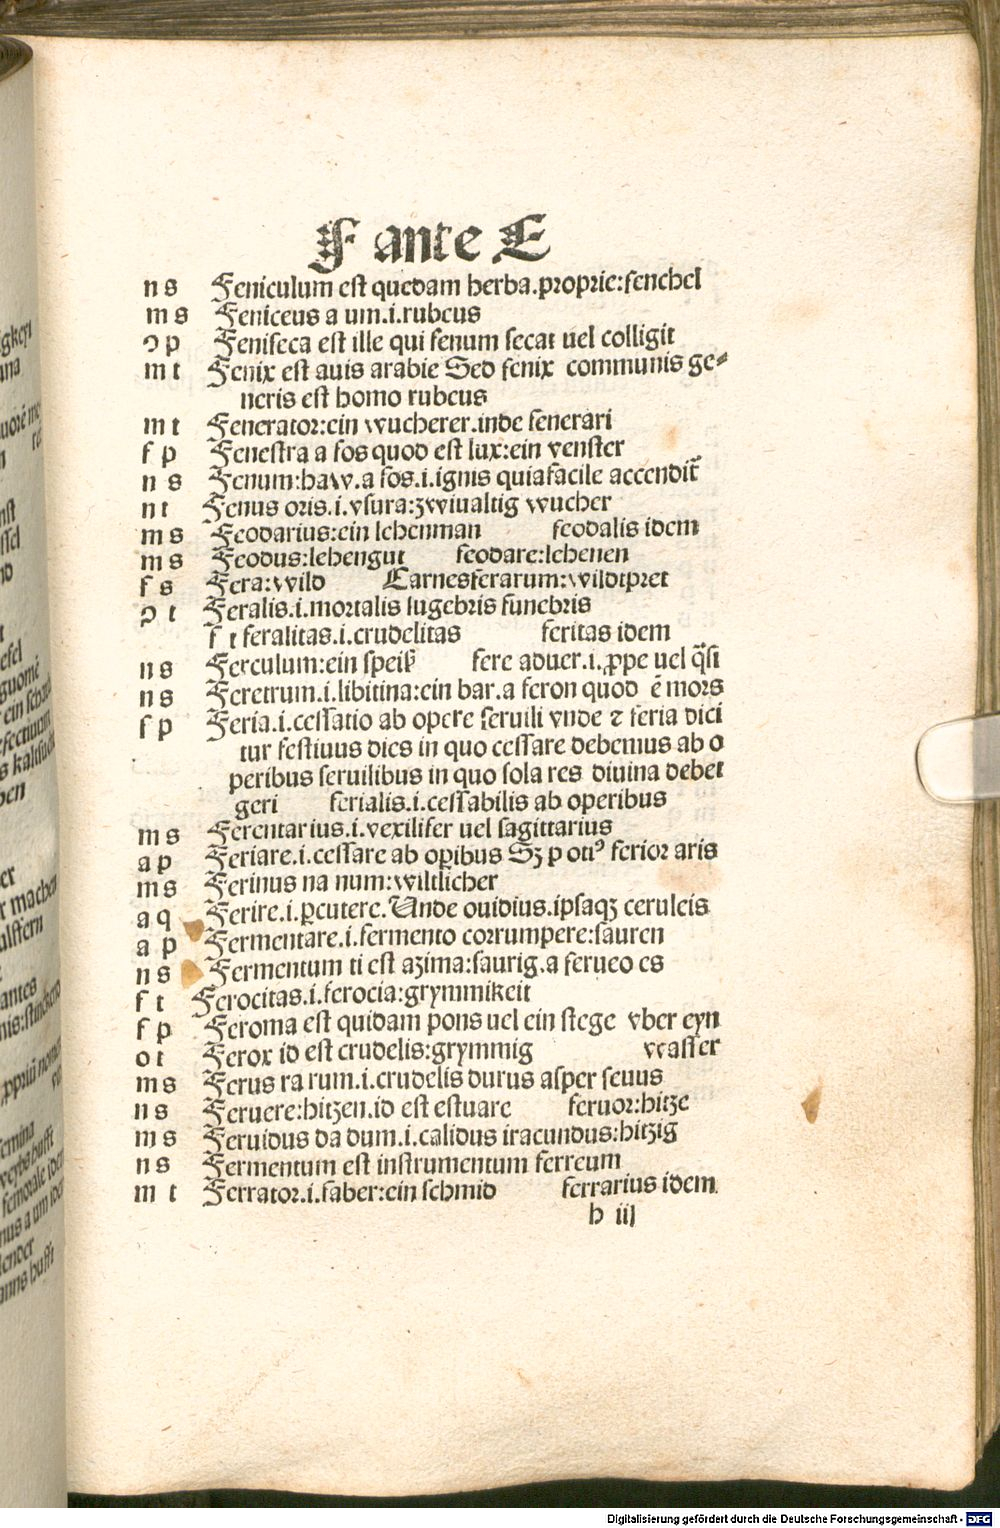 F ante E
n s Feniculum est quedam herba.proprie:fenchel
m s Feniceus a um.i.rubeus
ꝯ p Feniseca est ille qui fenum secat uel colligit
m t Fenix est auis arabie Sed fenix communis ge⸗
neris est homo rubeus
m t Fenerator:ein wucherer.inde fenerari
f p Fenestra a fos quod est lux:ein venster
n s Fenum:haw.a fos.i.ignis quiafacile accendit̄
n t Fenus oris.i.vsura:zwiualtig wucher
m s Feodarius:ein lehenman feodalis idem
m s Feodus:lehengut feodare:lehenen
f s Fera:wild Carnesferarum:wildtpret
ꝯ t Feralis.i.mortalis lugebris funebris
f t feralitas.i.crudelitas feritas idem
n s Ferculum:ein speiß fere aduer.i.ꝓpe uel q̄si
n s Feretrum.i.libitina:ein bar.a feron quod ē mors
f p Feria.i.cessatio ab opere seruili vnde ⁊ feria dici
tur festiuus dies in quo cessare debemus ab o
peribus seruilibus in quo sola res diuina debet
geri ferialis.i.cessabilis ab operibus
m s Ferentarius.i.vexilifer uel sagittarius
a p Feriare.i.cessare ab oꝑibus Sꝫ p otiꝰ ferior aris
m s Ferinus na num:wiltlicher
a q Ferire.i.ꝑcutere.Unde ouidius.ipsaqꝫ ceruleis
a p Fermentare.i.fermento corrumpere:sauren
n s Fermentum ti est azima:saurig.a ferueo es
f t Ferocitas.i.ferocia:grymmikeit
f p Feroma est quidam pons uel ein stege vber eyn
o t Ferox id est crudelis:grymmig wasser
m s Ferus ra rum.i.crudelis durus asper seuus
n s Feruere:hitzen.id est estuare feruor:hitze
m s Feruidus da dum.i.calidus iracundus:hitzig
n s Fermentum est instrumentum ferreum
m t Ferrator.i.faber:ein schmid ferrarius idem
h iij
Digitalisierung gefördert durch die Deutsche Forschungsgemeinschaft - DFG